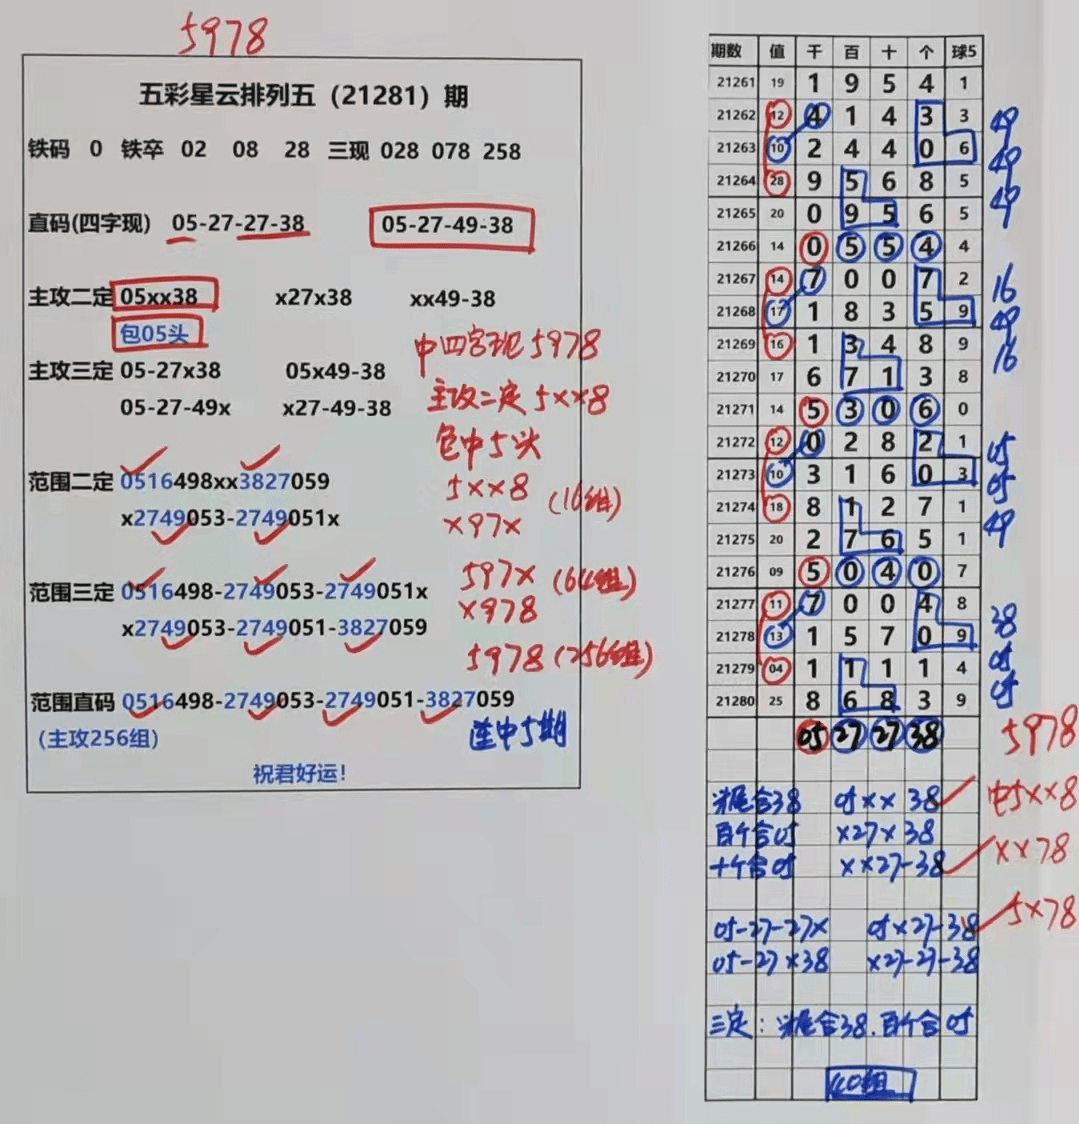 5978
五彩星云排列五（21281）期
铁码 0 铁卒 02 08 28 三现 028 078 258
直码(四字现) 05-27-27-38 05-27-49-38
主攻二定 05xx38 x27x38 xx49-38
包05头
中四字现5978
主攻三定 05-27x38 05x49-38
主攻二定5xx8
05-27-49x x27-49-38
包中5头
范围二定 0516498xx3827059
5xx8 (16组)
x2749053-2749051x
x97x
范围三定 0516498-2749053-2749051x
597x (64组)
x2749053-2749051-3827059
x978
5978 (256组)
范围直码 0516498-2749053-2749051-3827059
(主攻256组) 连中5期
祝君好运！
期数 值 千 百 十 个 球5
21261 19 1 9 5 4 1
21262 12 4 1 4 3 3 49
21263 10 2 4 4 0 6 49
21264 28 9 5 6 8 5 49
21265 20 0 9 5 6 5
21266 14 0 5 5 4 4
21267 14 7 0 0 7 2 16
21268 17 1 8 3 5 9 49
21269 16 1 3 4 8 9 16
21270 17 6 7 1 3 8
21271 14 5 3 0 6 0
21272 12 0 2 8 2 1 05
21273 10 3 1 6 0 3 05
21274 18 8 1 2 7 1 49
21275 20 2 7 6 5 1
21276 09 5 0 4 0 7
21277 11 7 0 0 4 8 38
21278 13 1 5 7 0 9 05
21279 04 1 1 1 1 4 05
21280 25 8 6 8 3 9
05 27 27 38 5978
尾合38 05xx38 中5xx8
百个合05 x27x38
十个合05 xx27-38 xx78
05-27-27x 05x27-38 5x78
05-27x38 x27-27-38
三定：尾合38.百个合05
40组